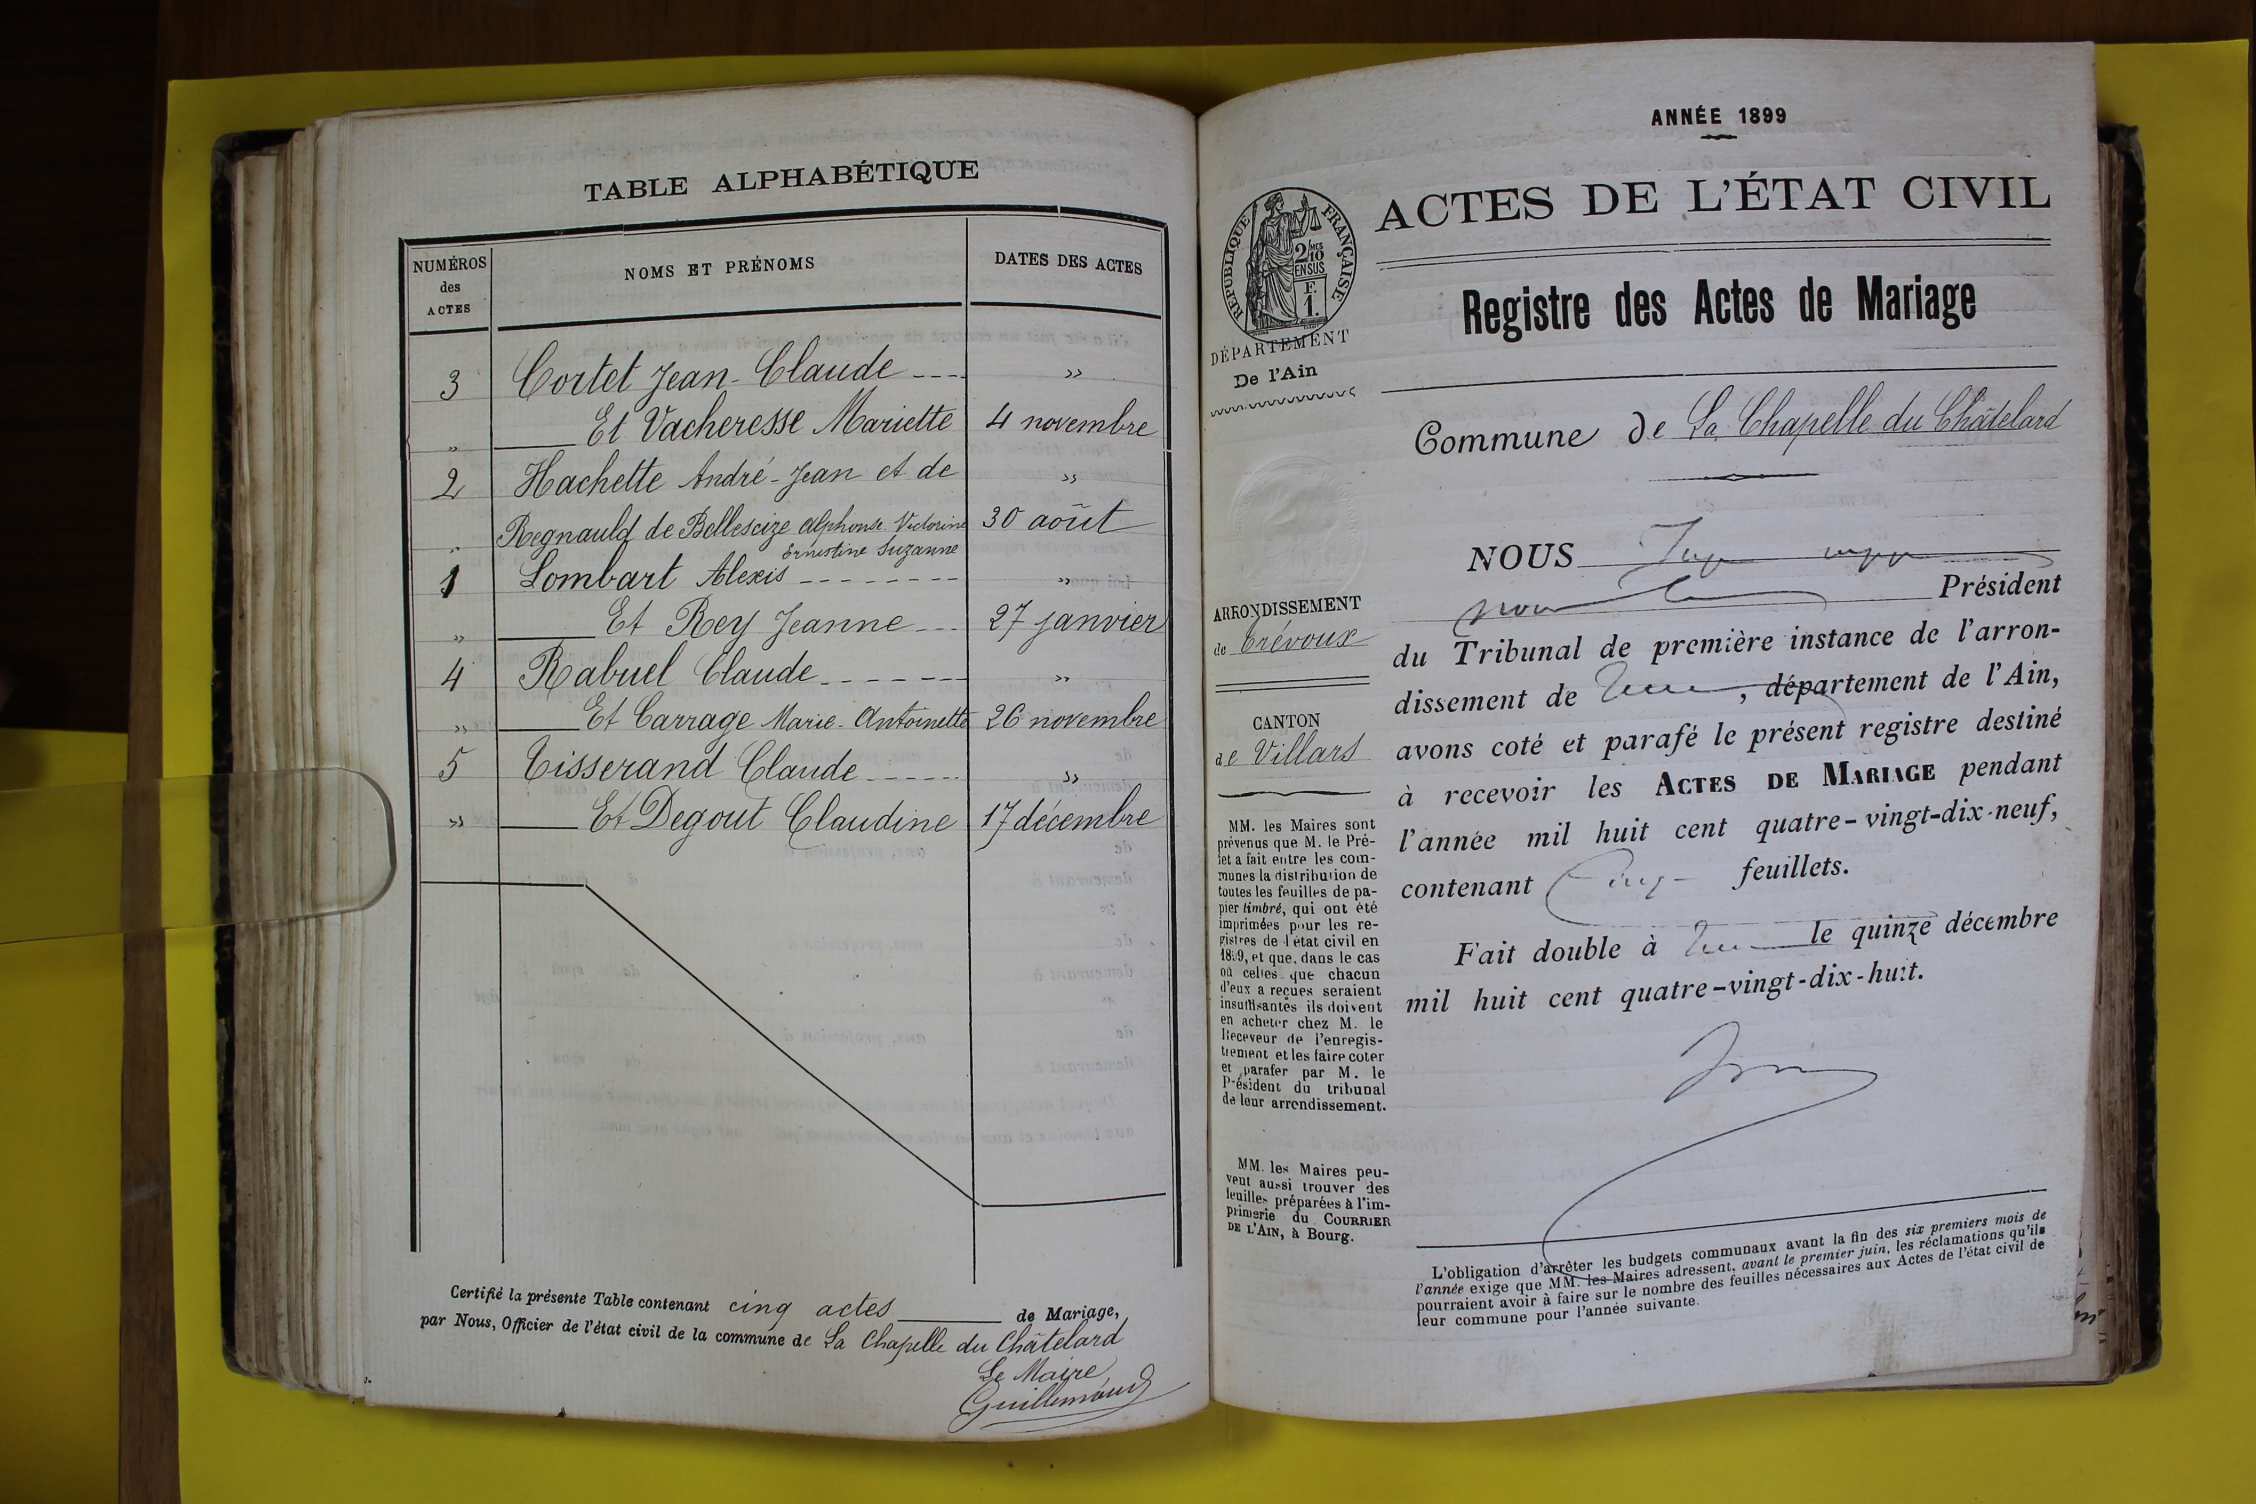 TABLE ALPHABÉTIQUE
NUMÉROS des ACTES
NOMS ET PRÉNOMS
DATES DES ACTES
3 Cortet Jean-Claude ---- »
» Et Vacheresse Mariette 4 novembre
2 Hachette André-Jean et de »
» Regnauld de Bellescize Alphonse Victorine 30 août
Ernestine Suzanne
1 Lombart Alexis -------- »
» Et Rey Jeanne --- 27 janvier
4 Rabuel Claude ------- »
» Et Carrage Marie-Antoinette 26 novembre
5 Tisserand Claude ------ »
» Et Degout Claudine 17 décembre
Certifié la présente Table contenant cinq actes de Mariage,
par Nous, Officier de l'état civil de la commune de La Chapelle du Châtelard
Le Maire
Guillemaud
ANNÉE 1899
ACTES DE L'ÉTAT CIVIL
Registre des Actes de Mariage
RÉPUBLIQUE FRANÇAISE
2/10 MES
EN SUS
F.
1.
DÉPARTEMENT
De l'Ain
Commune de La Chapelle du Châtelard
NOUS
Président
du Tribunal de première instance de l'arron-
dissement de , département de l'Ain,
avons coté et parafé le présent registre destiné
à recevoir les ACTES DE MARIAGE pendant
l'année mil huit cent quatre-vingt-dix-neuf,
contenant Cinq feuillets.
Fait double à le quinze décembre
mil huit cent quatre-vingt-dix-huit.
ARRONDISSEMENT
de Trévoux
CANTON
de Villars
MM. les Maires sont
prévenus que M. le Pré-
fet a fait entre les com-
munes la distribution de
toutes les feuilles de pa-
pier timbré, qui ont été
imprimées pour les re-
gistres de l'état civil en
1899, et que, dans le cas
où celles que chacun
d'eux a reçues seraient
insuffisantes ils doivent
en acheter chez M. le
Receveur de l'enregis-
trement et les faire coter
et parafer par M. le
Président du tribunal
de leur arrondissement.
MM. les Maires peu-
vent aussi trouver des
feuilles préparées à l'im-
primerie du COURRIER
DE L'AIN, à Bourg.
L'obligation d'arrêter les budgets communaux avant la fin des six premiers mois de
l'année exige que MM. les Maires adressent, avant le premier juin, les réclamations qu'ils
pourraient avoir à faire sur le nombre des feuilles nécessaires aux Actes de l'état civil de
leur commune pour l'année suivante.